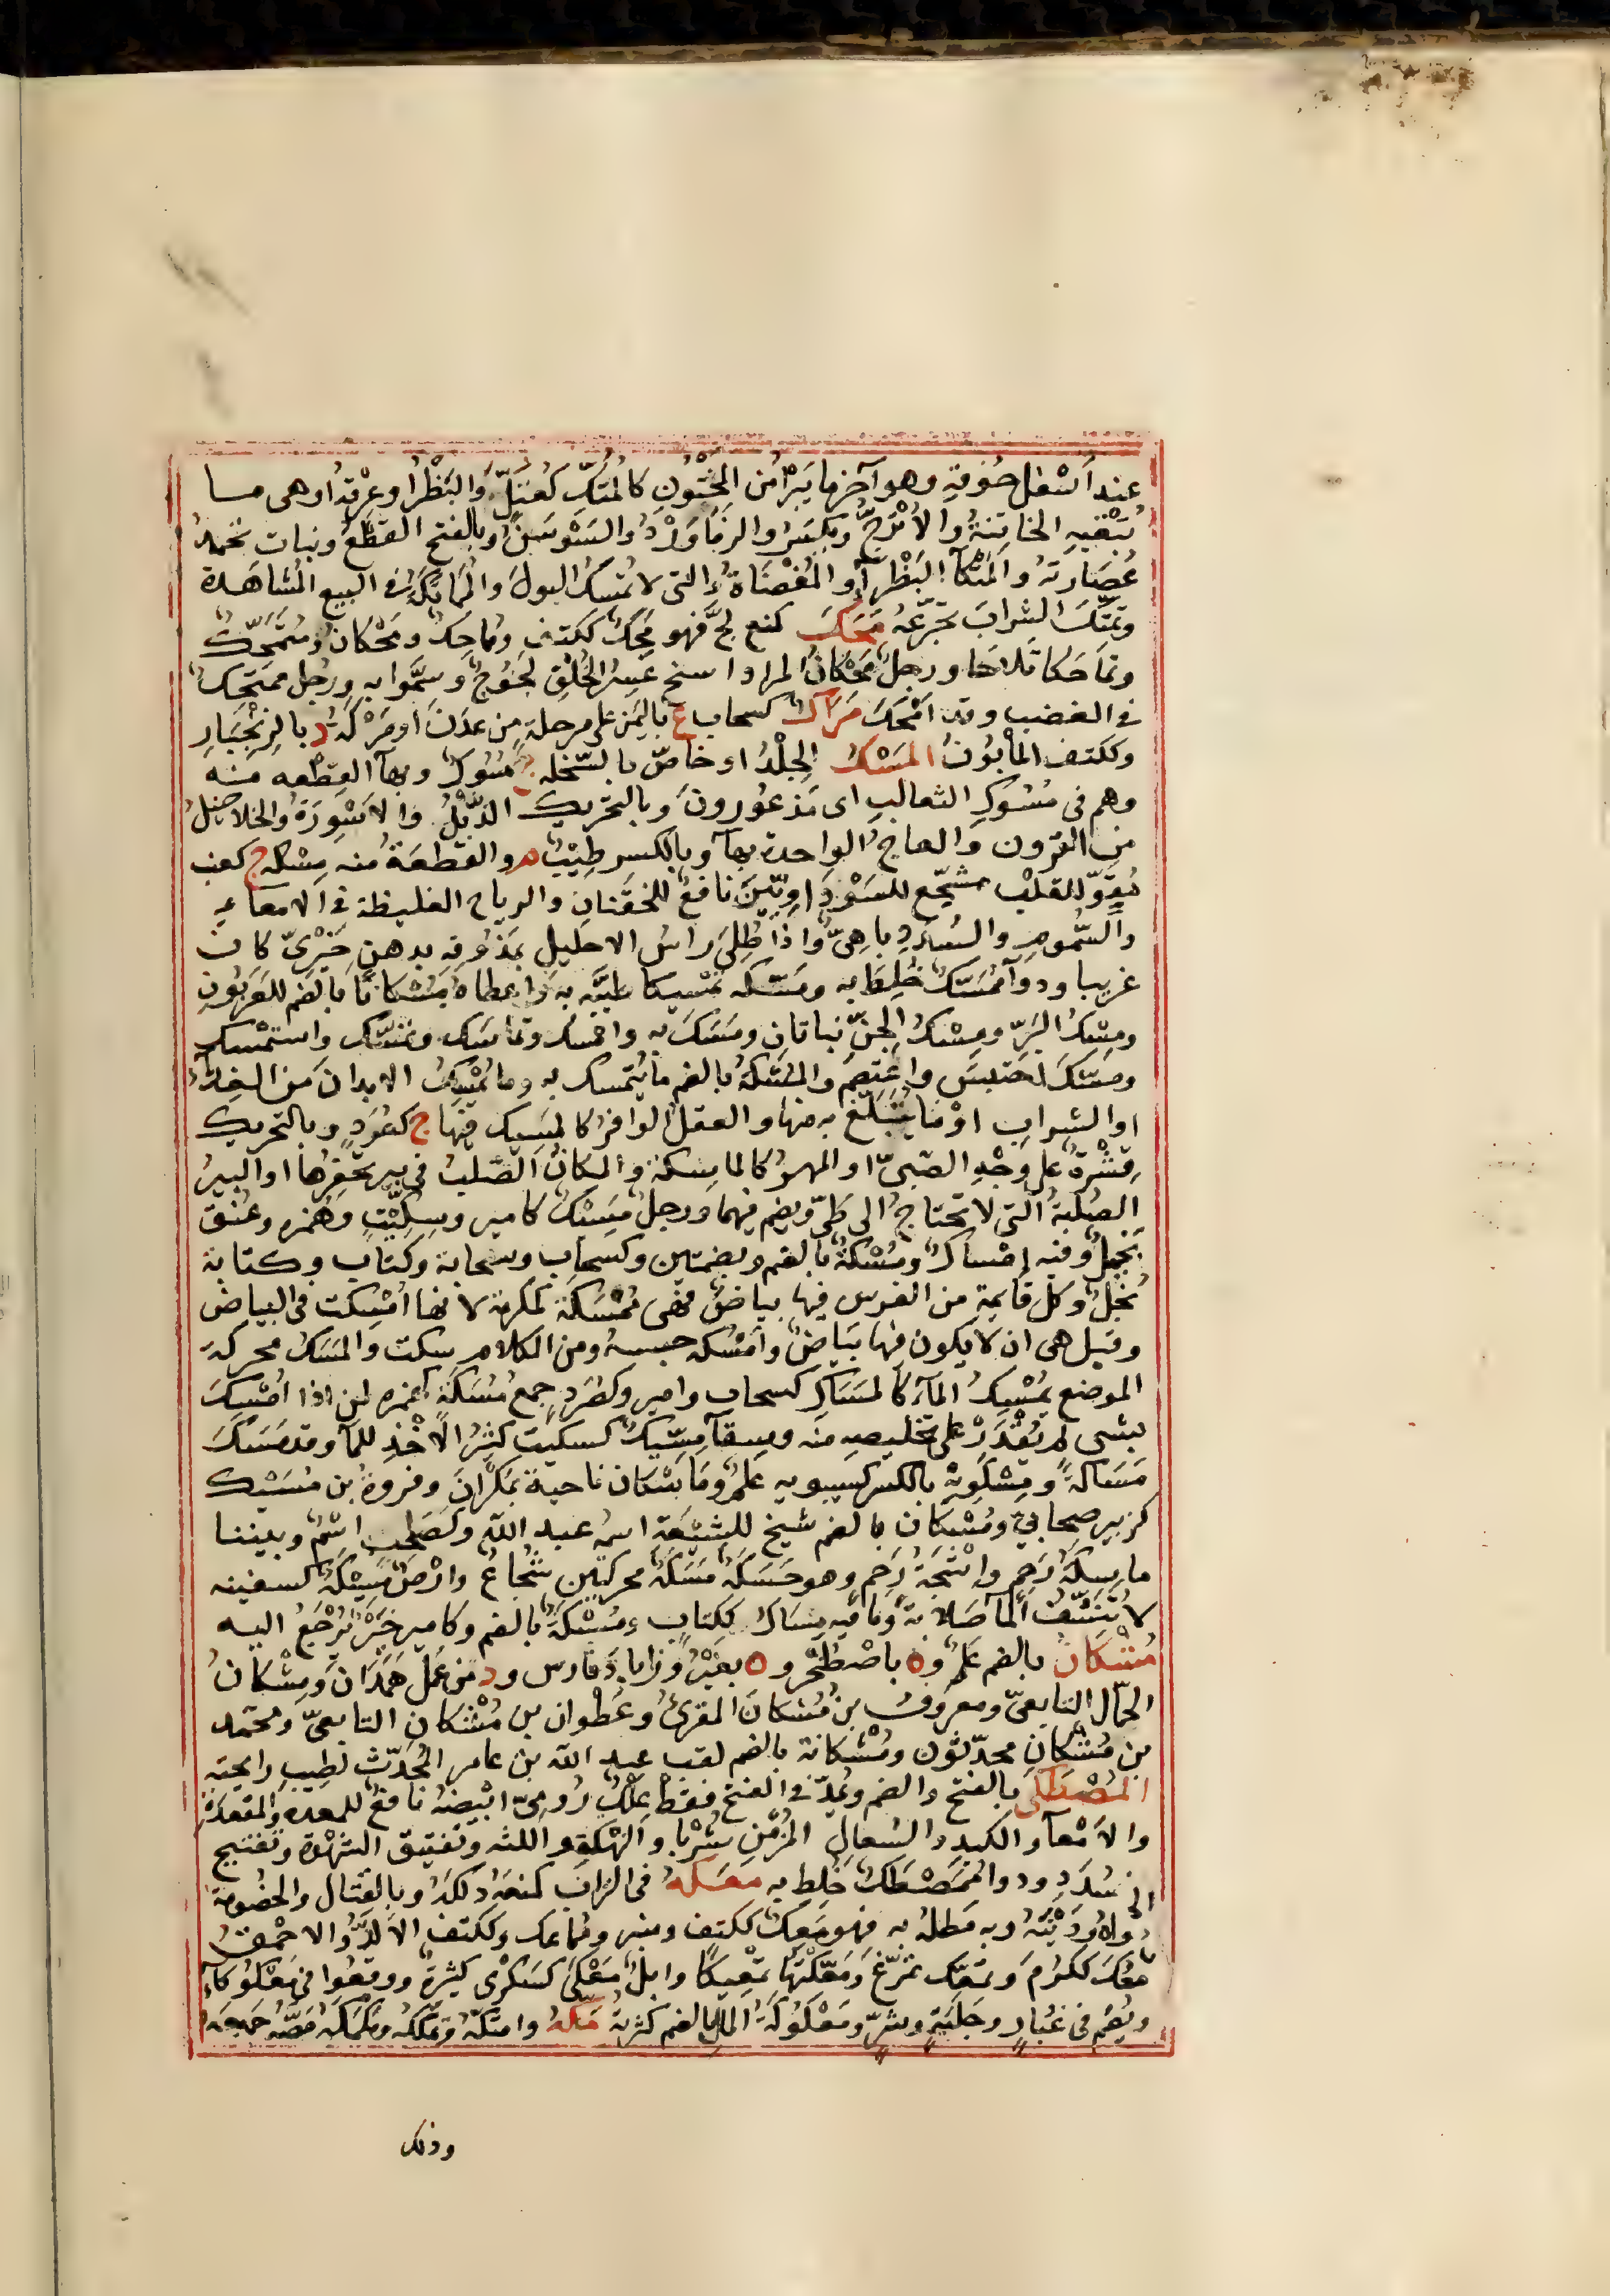 عند أسفل حوقه وهو آخر ما يبرأ من المختون كالمتكّ كعتلّ والبظر او عرقه او هى ما
تبقيه الخاتنة والاترجّ ويكسر والزماورد والسوسن وبالفتح القطع ونبات تجمد
عصارته والمتكآ البظرآ والمفضاة والتى لا تمسك البول والمماتكة فى البيع المشاهدة
وتمتّك الشراب تجرّعه محك كمنع لجّ فهو محك ككتف ومماحك ومحكان ومتمحّك
وتماحكا تلاحا ورجل محكان عسر الخلق لجوج وسمّوا به ورجل ممتحك
فى الغضب وقد امحك مراك كسحاب ع باليمن على مرحلة من عدن او مركة د بالزنجبار
وككتف المأبون المسك الجلد او خاصّ بالسّخله ج مسوك وبهآ القطعه منه
وهم فى مسوك الثعالب اى مذعورون وبالتحريك الذّبل والاسورة والخلاخيل
من القرون والعاج الواحدة بهآ وبالكسر طيب م والقطعة منه مسكه ج كعنب
مقوّ للقلب مشجّع للسوداويّين نافع للخفقان والرياح الغليظة فى الامعآء
والسّموم والسدد باهىّ واذا طلى راس الاحليل بمذوقه بدهن خيرىّ كان
غريبا ودوآ ممسّك خلط به ومسّكه تمسيكا طيّبه به واعطاه مسكانا بالضم للعربون
ومسك البرّ ومسك الجنّ نباتان ومسك به وامسك وتماسك وتمسّك واستمسك
ومسّك احتبس واعتصم والمسكة بالضم ما يتمسك به وما يمسك الابدان من الغذآ
او الشراب او ما يتبلّغ به منهما والعقل الوافر كالمسيك فيهما ج كصرد وبالتحريك
قشرة على وجه الصّبىّ او المهر كالماسكة والمكان الصّلب فى بير تحفرها او البير
الصلبة التى لا تحتاج الى طىّ ويضم فيهما ورجل مسيك كامير وسكّيت وهمزه وعنق
بخيل وفيه امساك ومسكة بالضم وبضمتين وكسحاب وسحابة وكتاب وكتابة
بخل وكل قايمة من الفرس فيها بياض فهى ممسكة كمكرمة لانها امسكت فى البياض
وقيل هى ان لا يكون فيها بياض وامسكه حبسه ومن الكلام سكت والمسك محركة
الموضع يمسك المآء كالمساك كسحاب وامير وكصرد جمع مسكة كهمزه لمن اذا امسك
بشى لم يقدر على تخليصه منه وسقآ مسّيك كسكيت كثير الاخذ للمآ وقد مسك
مساكة ومسكويه بالكسر كسيبويه علم وماسكان ناحية بمكران وفروة بن مسيك
كزبير صحابىّ ومسكان بالضم شيخ للشيعة اسمه عبد الله وكصاحب اسم وبيننا
ماسكة رحم وانتجة رحم وهو حسكة مسكة محركتين شجاع وارض مسيكة كسفينه
لا تنشف المآ صلابة وما فيه مساك ككتاب ومسكة بالضم وكامير خير يرجع اليه
مشكان بالضم علم وه باصطخر وه بفيروزاباد فارس ود من عمل همذان ومشكان
الحمّال التابعىّ ومعروف بن مشكان المقرئ وعطوان بن مشكان التابعىّ ومحمد
بن مشكان محدّثون ومشكانة بالضم لقب عبد الله بن عامر المحدّث لطيب رايحته
المصطكى بالفتح والضم ويمدّ فى الفتح فقط علك رومىّ ابيضه نافع للمعده والمقعدة
والامعآ والكبد والسعال المزمن شربا والنهكة واللثه وتفتيق الشهوة وتفتيح
السدد ودوآ ممصطك خلط به معكه فى التراب كمنعه دلكه وبالقتال والخصومة
لواه ودينه وبه مطله به فهو معك ككتف ومنبر ومماعك وككتف الالدّ والاحمق
معك ككرم وتمعّك تمرّغ ومعّكتها تمعيكا وابل معكى كسكرى كثيرة ووقعوا فى معكوكآ
ويضم فى غبار وجلبة وشرّ ومعكوكة المال بالضم كثرته مكه وامتكّه وتمكّكه ومكمكه مصّه جميعه
وذلك